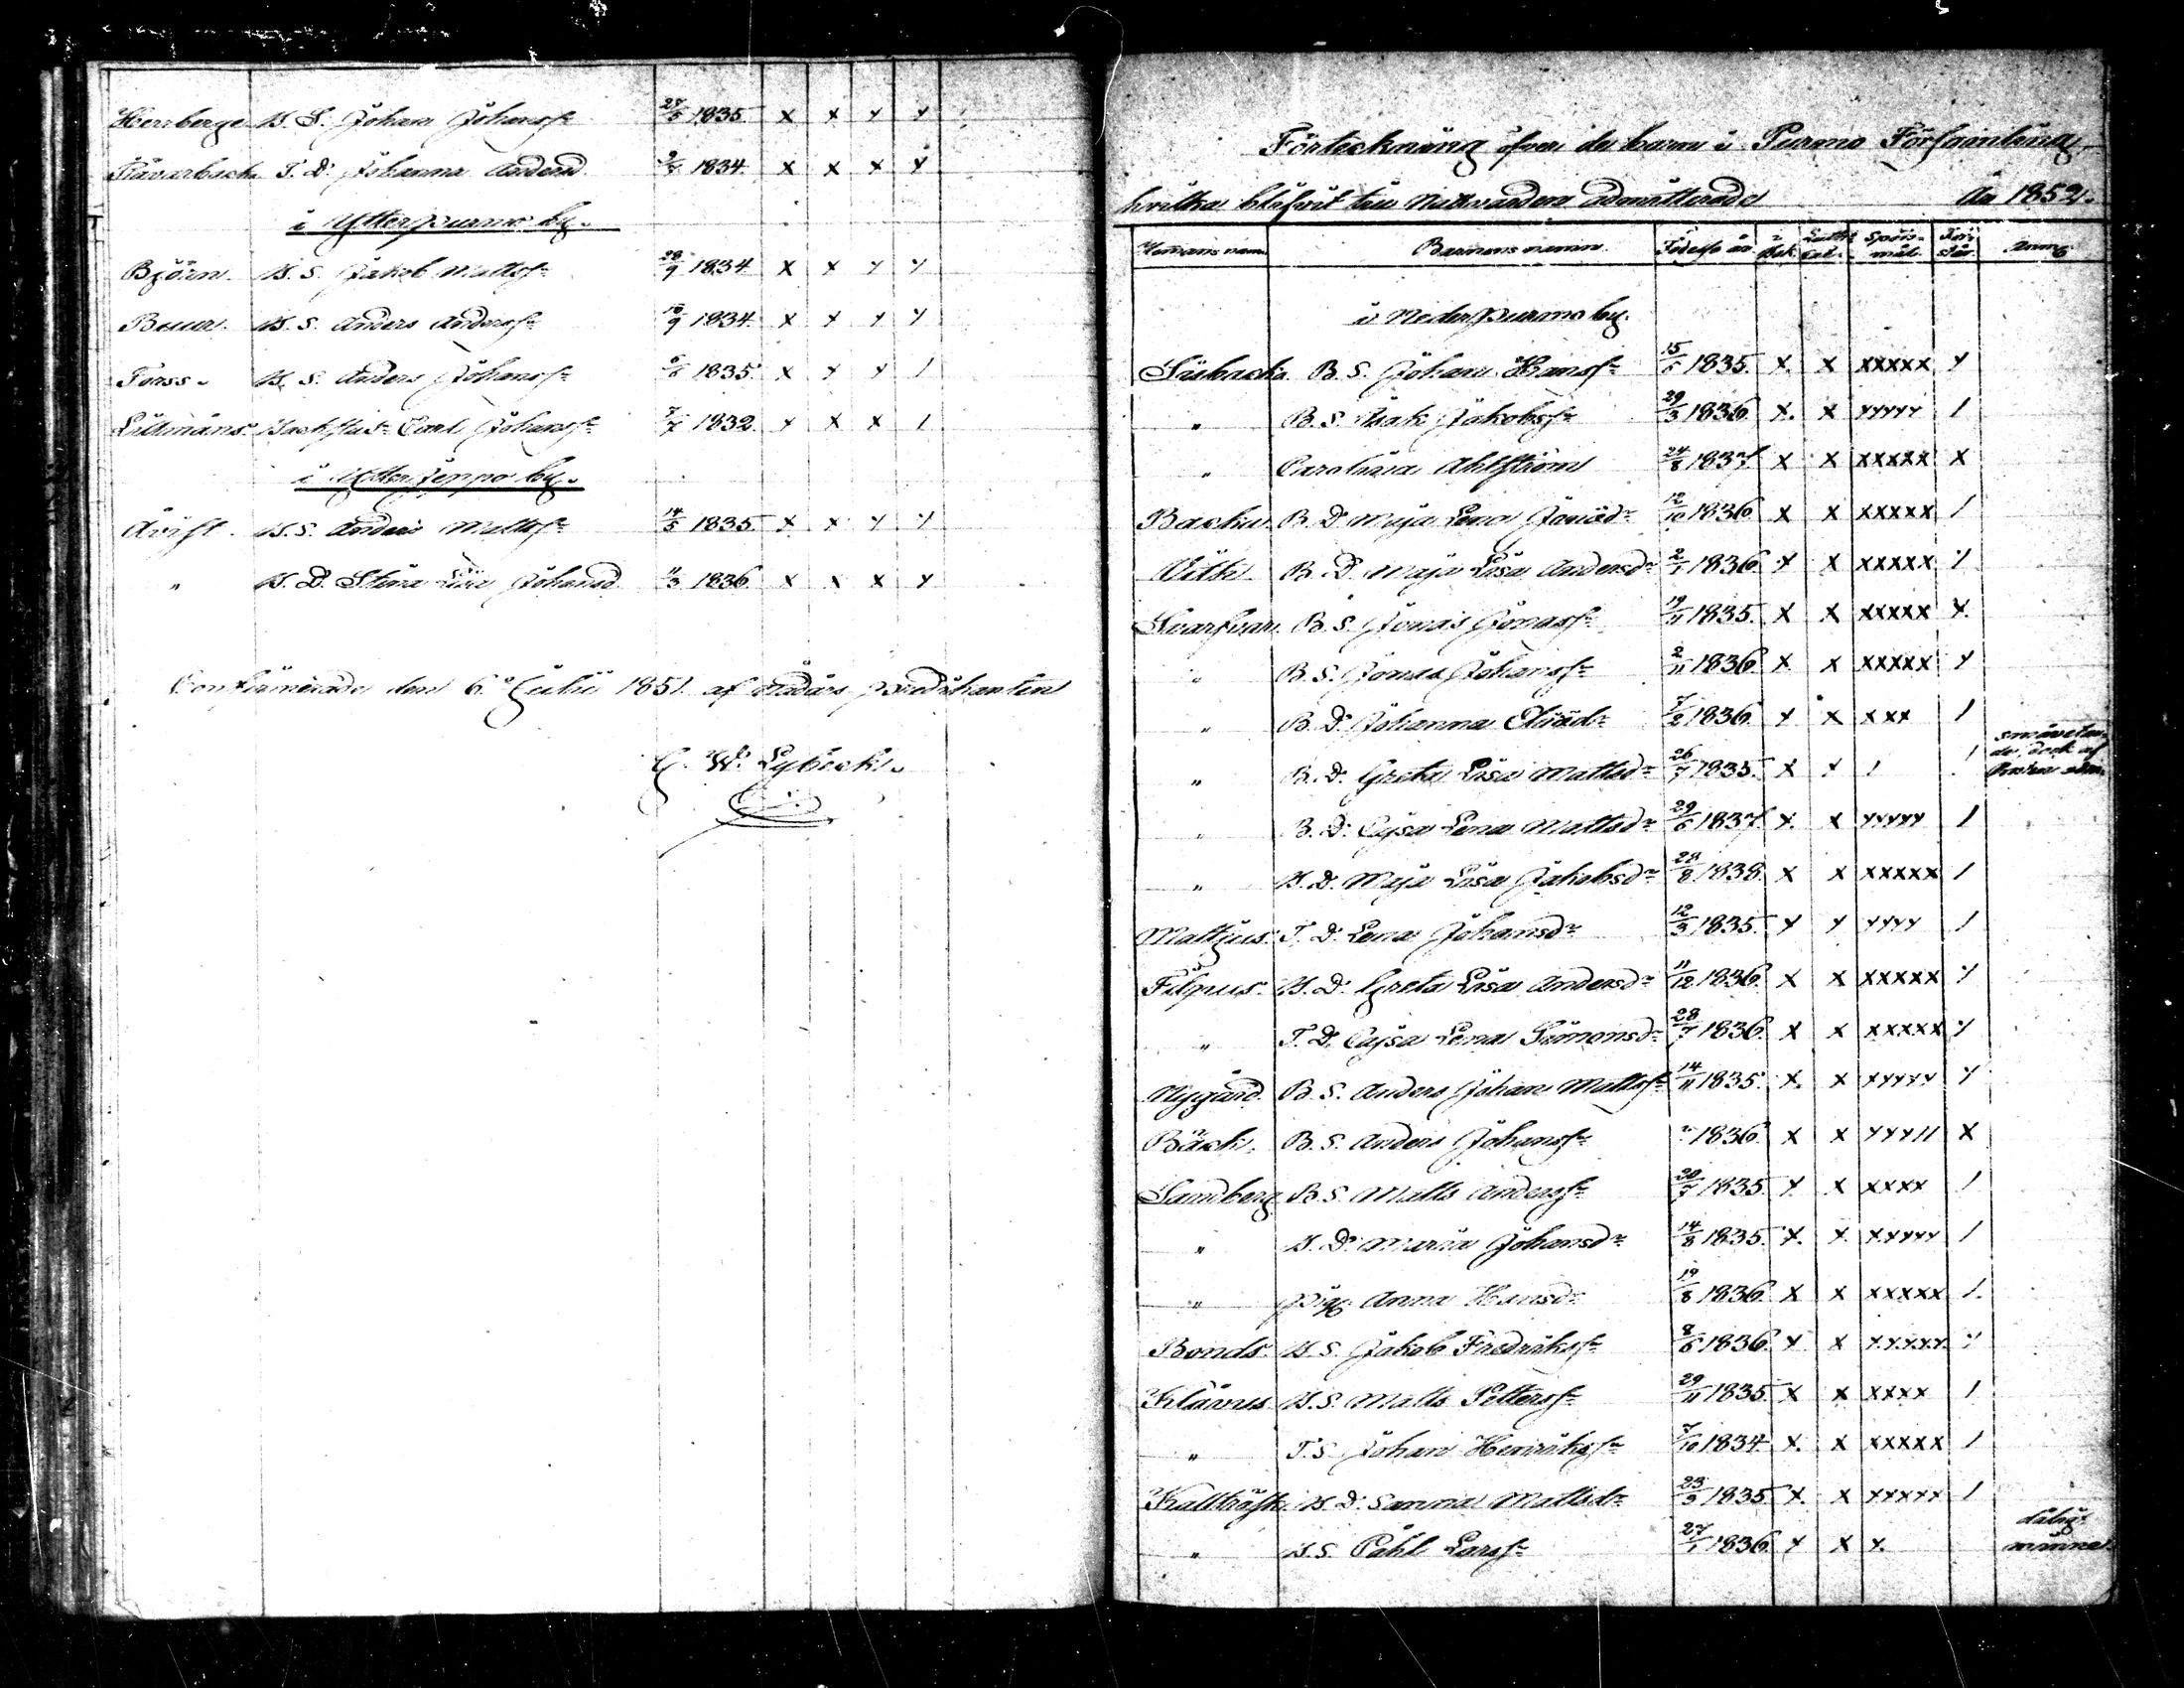 Herrberge B. S. Johan Johansn 27/5 1835 x x x x
T. D. Johanna Andersd. 2/ 1834 x x x x
i Ytterpurmo by.
Björn. B. S. Jakob Mattsn 28/9 1834 x x x x
B. S. Anders Andersn 10/9 1834 x x x x
Forss. B. S. Anders Johansn 1835 x x x /
Lillmåns Carl Johansn 1832 x x x /
i Ytterjeppo by.
B. S. Anders Mattsn 14/5 1835 x x x x
" B. D. Stina Lisa Johansd. 11/3 1836 x x x x
Confirmerade den 6 Julii 1851. af Nådårs predikanten
C. W. Lybeck.
Förteckning öfver de barn i Purmo Församling
hvilka blifvit till Nattvarden admitterade År 1852.
Hemans namn Barnens namn. Födelse år i Bok Luth. Cat. Spörsmål. Förstår Anm:
i Nederpurmo by.
Sisbacka B. S. Johan Hansn 15/ 1835 x x xxxxx x
" B. S. Isak Jakobsn 29/3 1836 x x xxxxx /
" Carolina Ahlström 24/8 1837 x x xxxxx x
Backa B. D. Maja Lena 12/10 1836 x x xxxxx /
B. D. Maja Lisa Andersdr 2/ 1836 x x xxxxx x
Svarfvar. B. S. Jonas Jonasn 19/11 1835 x x xxxxx x
" B. S. Jonas Johansn 2/11 1836 x x xxxxx x
" B. D. Johanna 7/2 1836 x x xxx /
" B. D. Greta Lisa Mattsdr 26/7 1835 x x / /
" B. D. Cajsa Lena Mattsdr 29/6 1837 x x xxxxx /
" B. D. Maja Lisa Jakobsdr 28/8 1838 x x xxxxx /
Mattjus. T. D. Lena Johansdr 12/3 1835 x x xxxx /
Filpus. B. D. Greta Lisa Andersdr 11/12 1836 x x xxxxx x
" T. D. Cajsa Lena Simonsdr 28/7 1836 x x xxxxx x
Nygård. B. S. Anders Johan Mattsn 14/11 1835 x x xxxxx x
Bäck. B. S. Anders Johansn 1836 x x xxx// x
Sandberg B. S. Matts Andersn 20/7 1835 x x xxxx /
" B. D. Maria Johansdr 14/8 1835 x x xxxxx /
" Pig. Anna Hansdr 19/8 1836 x x xxxxx /
Bonds. B. S. Jakob Fredriksn 8/6 1836 x x xxxxx x
Klavus B. S. Matts Pettersn 29/11 1835 x x xxxx /
" T. S. Johan Henriksn 7/10 1834 x x xxxxx /
Kallträsk B. D. Sanna Mattsdr 23/3 1835 x x xxxxx /
" B. S. Påhl Larsn 27/1 1836 x x x. dåligt minne